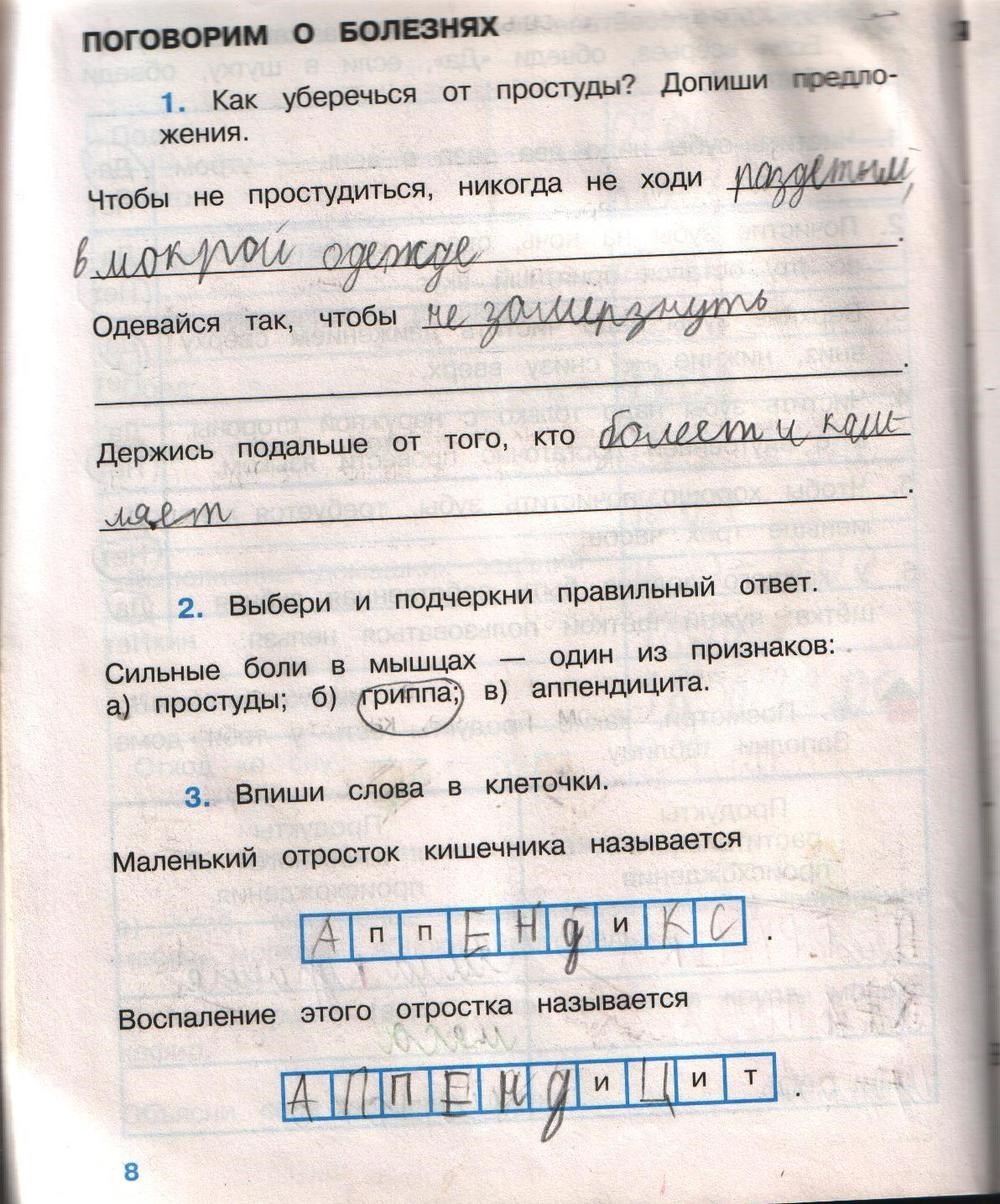 ПОГОВОРИМ О БОЛЕЗНЯХ
1. Как уберечься от простуды? Допиши предло-
жения.
Чтобы не простудиться, никогда не ходи раздетым,
в мокрой одежде.
Одевайся так, чтобы не замерзнуть
.
Держись подальше от того, кто болеет и каш-
ляет.
2. Выбери и подчеркни правильный ответ.
Сильные боли в мышцах — один из признаков:
а) простуды; б) гриппа; в) аппендицита.
3. Впиши слова в клеточки.
Маленький отросток кишечника называется
АппЕНдиКС.
Воспаление этого отростка называется
АППЕНдиЦит.
8